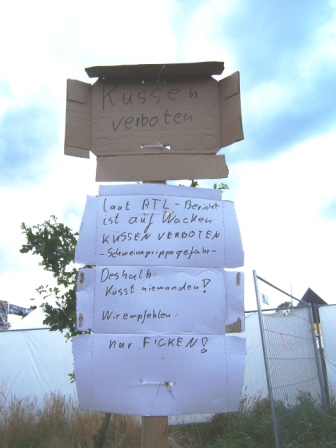 Küssen
verboten
laut RTL-Bericht
ist auf Wacken
KÜSSEN VERBOTEN
-Schweinegrippegefahr-
Deshalb:
Küsst niemanden!
Wir empfehlen:
nur FICKEN!